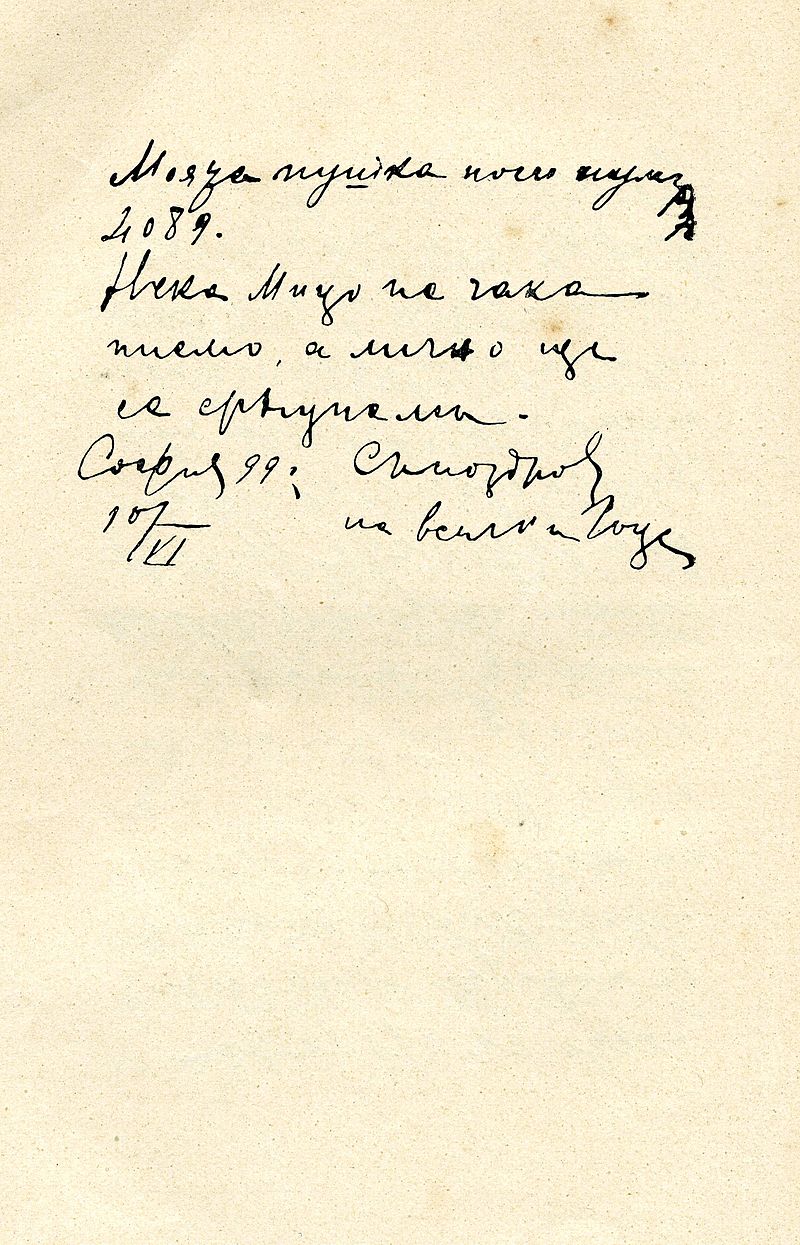 Моята пушка носи нумѣръ
4089.
Нека Мицо не чака
писмо, а лично ще
се срѣщнемъ.
София 99; Съ поздрав
на всички Гоце
10/VI